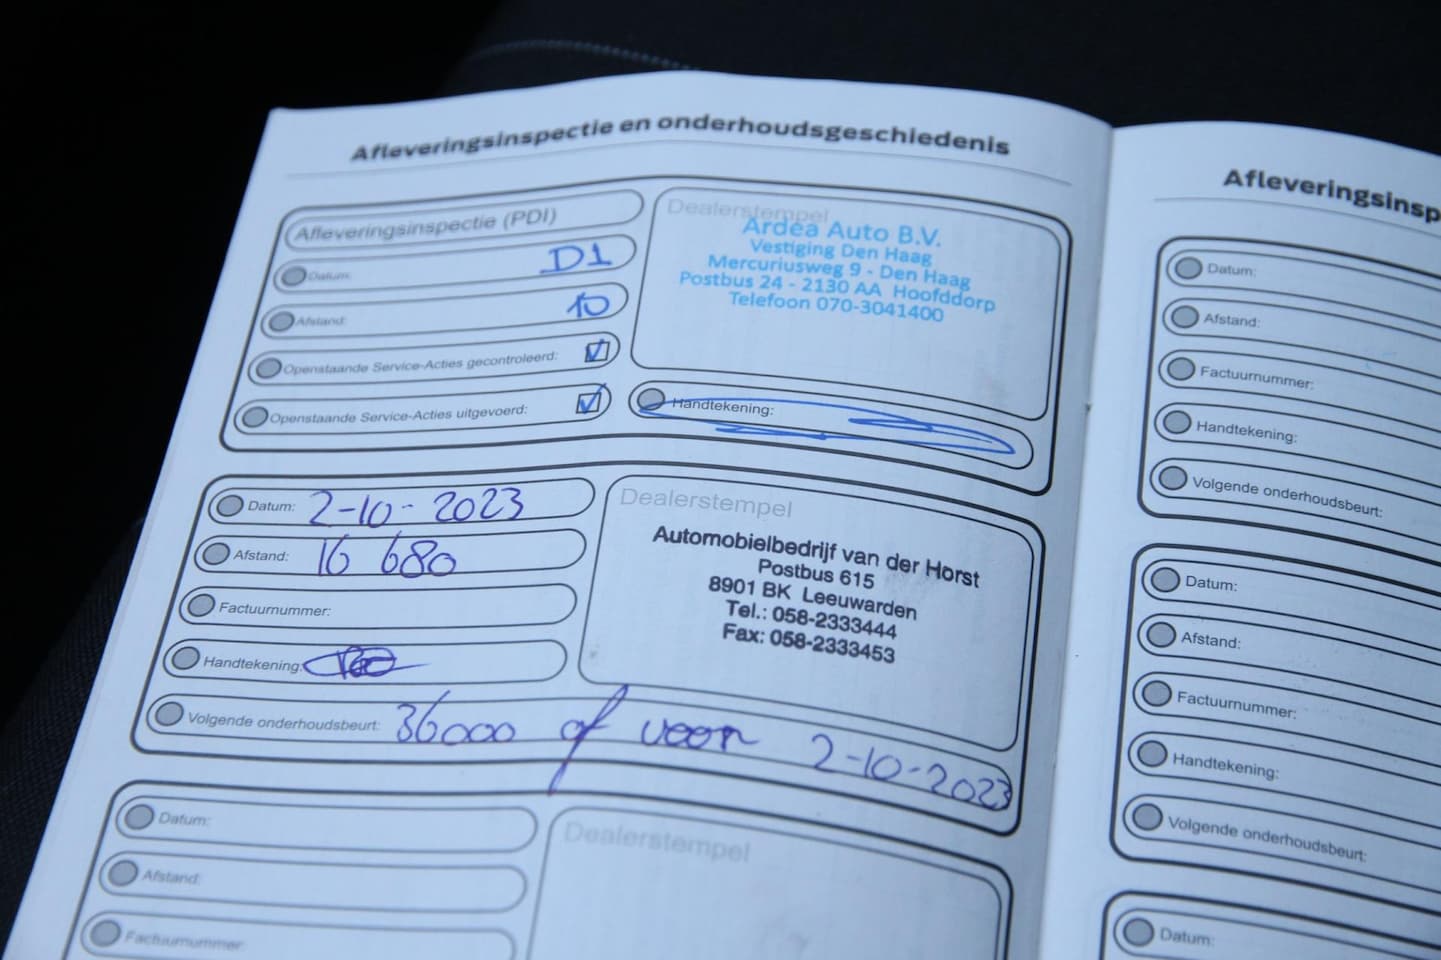 Afleveringsinspectie en onderhoudsgeschiedenis
Afleveringsinspectie (PDI)
Datum: D1
Afstand: 10
Openstaande Service-Acties gecontroleerd:
Openstaande Service-Acties uitgevoerd:
Dealerstempel
Ardea Auto B.V.
Vestiging Den Haag
Mercuriusweg 9 - Den Haag
Postbus 24 - 2130 AA Hoofddorp
Telefoon 070-3041400
Handtekening:
Datum: 2-10-2023
Afstand: 16 680
Factuurnummer:
Handtekening:
Volgende onderhoudsbeurt: 36000 of voor 2-10-2023
Dealerstempel
Automobielbedrijf van der Horst
Postbus 615
8901 BK Leeuwarden
Tel.: 058-2333444
Fax: 058-2333453
Datum:
Afstand:
Factuurnummer:
Dealerstempel
Afleveringsinsp
Datum:
Afstand:
Factuurnummer:
Handtekening:
Volgende onderhoudsbeurt:
Datum:
Afstand:
Factuurnummer:
Handtekening:
Volgende onderhoudsbeurt:
Datum: